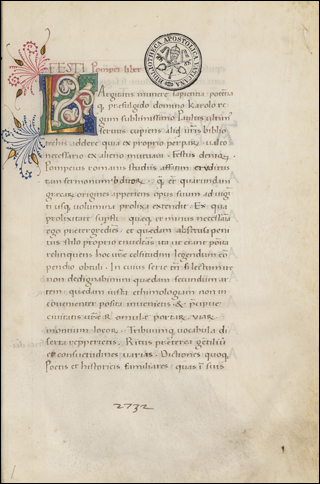 FESTI Pompei liber
LArgitatis munere sapientia potentia
q, prefulgido domino karolo re
gum sublimissimo Paulus ultim'
seruus cupiens aliqd uris biblio
thecis addere quia ex proprio perparū ualeo
necessario ex alieno mutuaui · Festus deniq,
Pompeius romanis studiis affatim eruditus
tam sermonum abditor, q̄ et quarundam
origines aperiens opus suum ad uigin
ti usq, uolumina prolixa extendit · Ex qua
prolixitate supflua queq, et minus necessaria
ego pretergrediens · et quedam abstrusa peni
tus stilo proprio enucleās, ita ut erant posita
relinquens hoc ure celsitudini legendum cō
pendio obtuli · In cuius serie
non dedignabimini quedam secundum ar
tem · quedam iuxta ethimologiam non in
conuenienter posita inuenietis & p̄cipue
ciuitatis ure Romulee portar, uiar,
montium locor, Tribuumq, uocabula di
serta reppetietis. Ritus preterea gentiliū
et consuetudines uarias · Dictiones quoq,
Poetis et historicis familiares quas in suis
2732
BIBLIOTHECA APOSTOLICA VATICANA